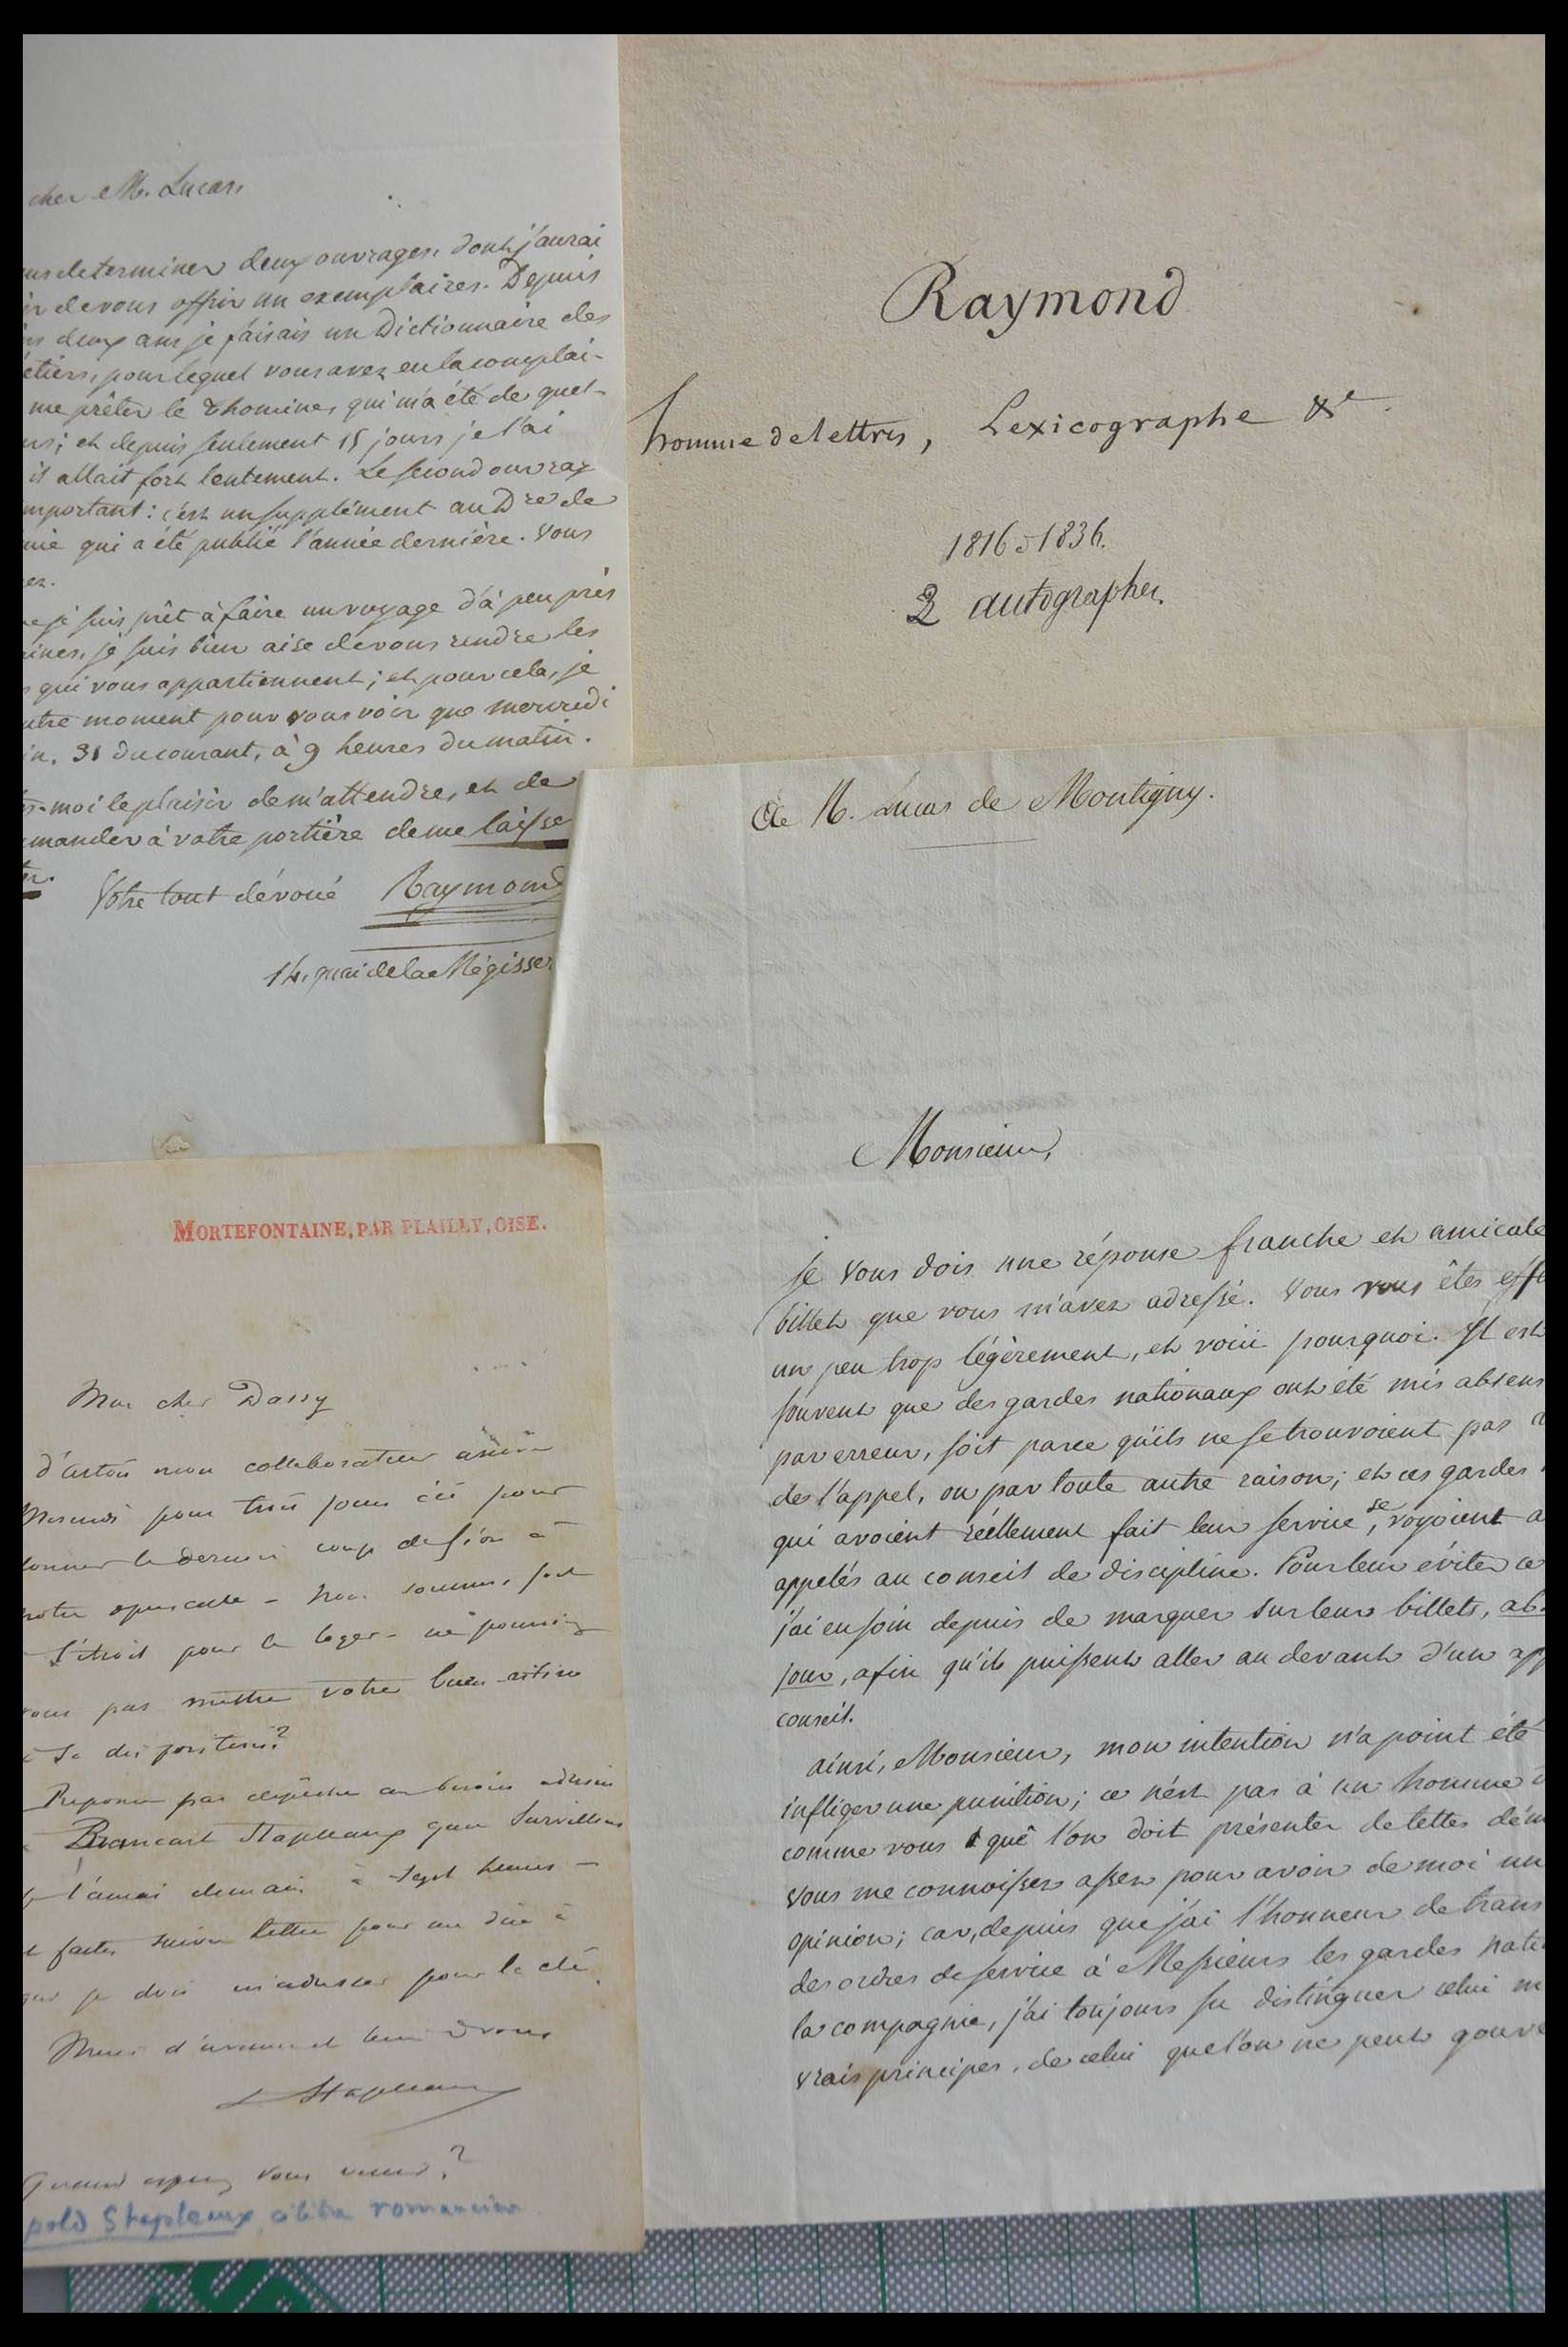 cher M. Lucas,
determiner deux ouvrages, dont j'aurai
de vous offrir un exemplaires. Depuis
deux ans je faisais un Dictionnaire des
pour lequel vous avez eu la complai-
me prêter le Thomines, qui m'a été de quel-
et depuis seulement 15 jours je l'ai
il allait fort lentement. Le second ouvrag
important: c'est un supplément au Dre de
qui a été publié l'année dernière. Vous
ez.
je suis prêt à faire un voyage d'à peu près
je suis bien aise de vous rendre les
qui vous appartiennent; et pour cela, je
utre moment pour vous voir que mercredi
31 du courant, à 9 heures du matin.
-moi le plaisir de m'attendre, et de
mander à votre portière de me laisse
Votre tout dévoué Raymond
14, quai de la Mégisser
Raymond
homme de lettres, Lexicographe &c.
1816 à 1836.
2 autographes.
à M. Lucas de Montigny.
Monsieur,
Je vous dois une réponse franche et amicale
billet que vous m'avez adressé. Vous vous êtes
un peu trop légèrement, et voici pourquoi. Il est
souvent que des gardes nationaux ont été mis absens
par erreur, soit parce qu'ils ne se trouvoient pas
de l'appel, ou par toute autre raison; et ces gardes
qui avoient réellement fait leur service, se voyoient a
appelés au conseil de discipline. Pour leur éviter ce
j'ai eu soin depuis de marquer sur leurs billets, ab.
jour, afin qu'ils puissent aller au devant d'un app
conseil.
ainsi, Monsieur, mon intention n'a point été
infliger une punition; ce n'est pas à un homme
comme vous que l'on doit présenter de telles dém
Vous me connoissez assez pour avoir de moi un
opinion; car, depuis que j'ai l'honneur de trans
des ordres de service à Messieurs les gardes nati
la compagnie, j'ai toujours su distinguer celui
vrais principes, de celui que l'on ne peut gouve
MORTEFONTAINE, PAR PLAILLY, OISE.
Mon cher Dassy
d'Artois mon collaborateur arrive
pour trois jours ici pour
donner le dernier coup de
notre opuscule - nous sommes fort
l'étroit pour le loger - ne pourriez
vous pas mettre votre
à sa disposition?
Réponse par dépêche au besoin
Stapleaux gare Survilliers
demain à sept heures -
et faites suivre lettre pour me dire à
qui je dois m'adresser pour la clé.
Stapleaux
Quand vous ?
pold Stapleaux, célèbre romancier